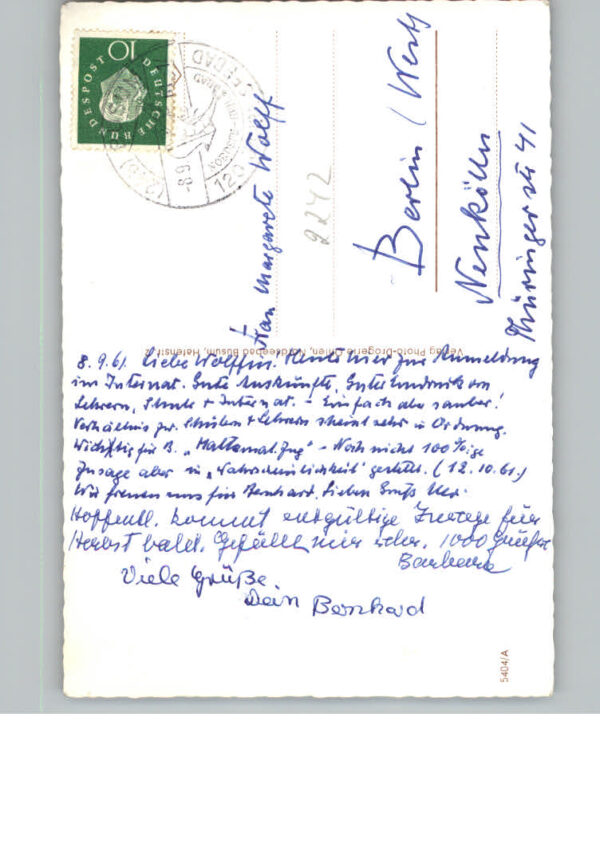 8.9.61. Liebe Wolffin. Heute hier zur Anmeldung
im Internat. Gute Auskünfte, guter Eindruck von
Lehrern, Schule + Internat. - Einfach aber sauber!
Verhältnis zw. Schülern + Lehrern scheint sehr in Ordnung.
Wichtig für B. „Mathemat. Zug" - Noch nicht 100%ige
Zusage aber in „Wahrscheinlichkeit" gestellt. (12.10.61.)
Wir freuen uns für Bernhard. Lieben Gruß
Hoffentl. kommt endgültige Zusage für
Herbst bald. Gefällt mir sehr. 1000 Grüße
Barbara
Viele Grüße
Dein Bernhard
Frau Margarete Wolff
Berlin / West
Neukölln
Thüringer str 41
2242
Verlag Photo-Drogerie Ohlen, Nordseebad Büsum, Hafenstr. 2
5404/A
DEUTSCHE BUNDESPOST
10